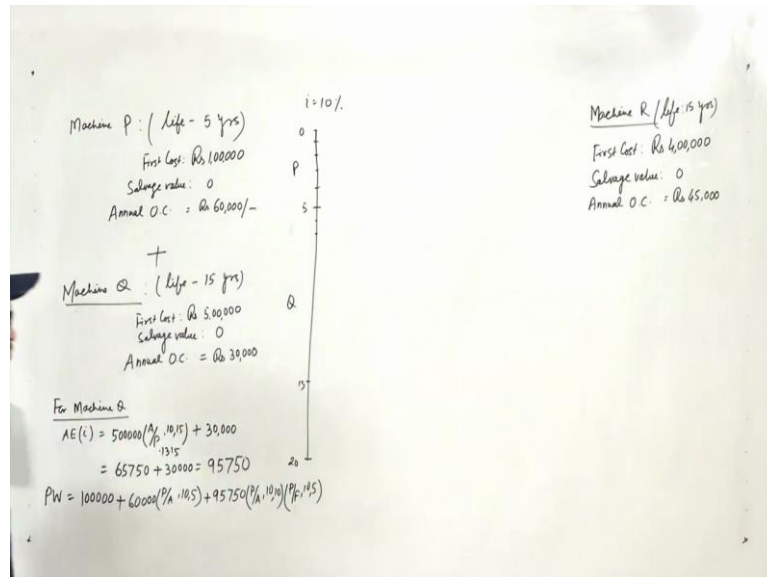 i=10%
Machine P : ( life - 5 yrs)
First Cost: Rs 1,00,000
Salvage value: 0
Annual O.C. : Rs 60,000/-
+
Machine Q : ( life - 15 yrs)
First Cost: Rs 5,00,000
Salvage value: 0
Annual O.C. = Rs 30,000
For Machine Q
AE(i) = 500000(A/P,10,15) + 30,000
.1315
= 65750 + 30000 = 95750
PW = 100000 + 60000(P/A,10,5) + 95750(P/A,10,10)(P/F,10,5)
0
P
5
Q
15
20
Machine R / life: 15 yrs)
First Cost: Rs 4,00,000
Salvage value: 0
Annual O.C. = Rs 45,000